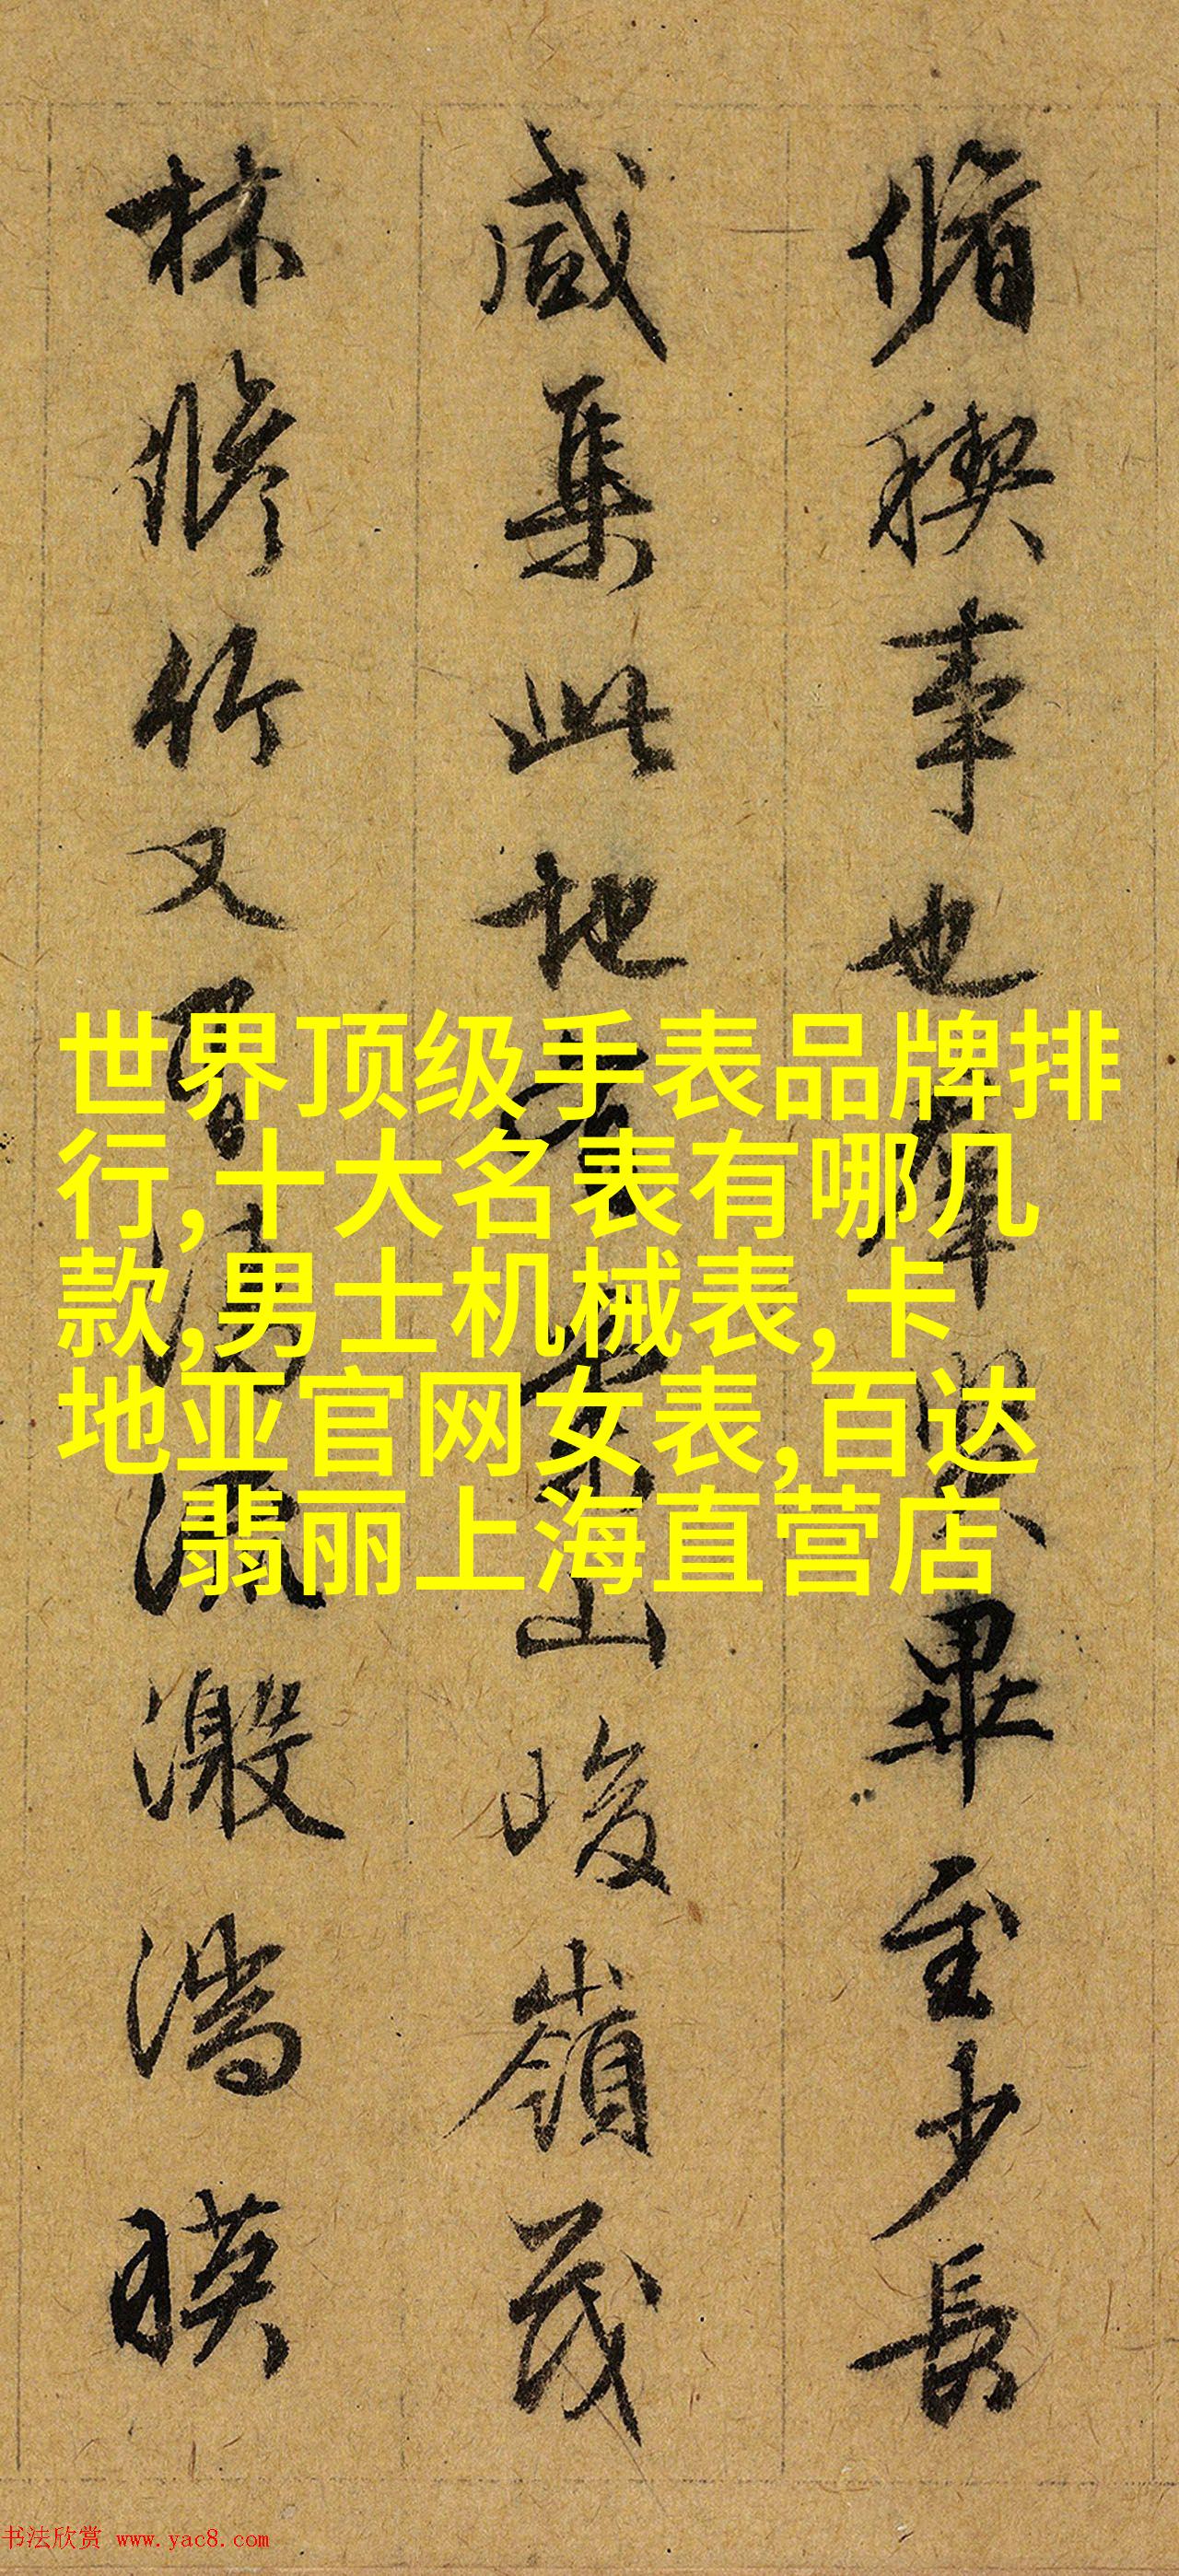 脩稧事也羣賢畢至少長
咸集此地有崇山峻嶺茂
林脩竹又有清流激湍暎
世界顶级手表品牌排
行,十大名表有哪几
款,男士机械表,卡
地亚官网女表,百达
翡丽上海直营店
书法欣赏 www.yac8.com